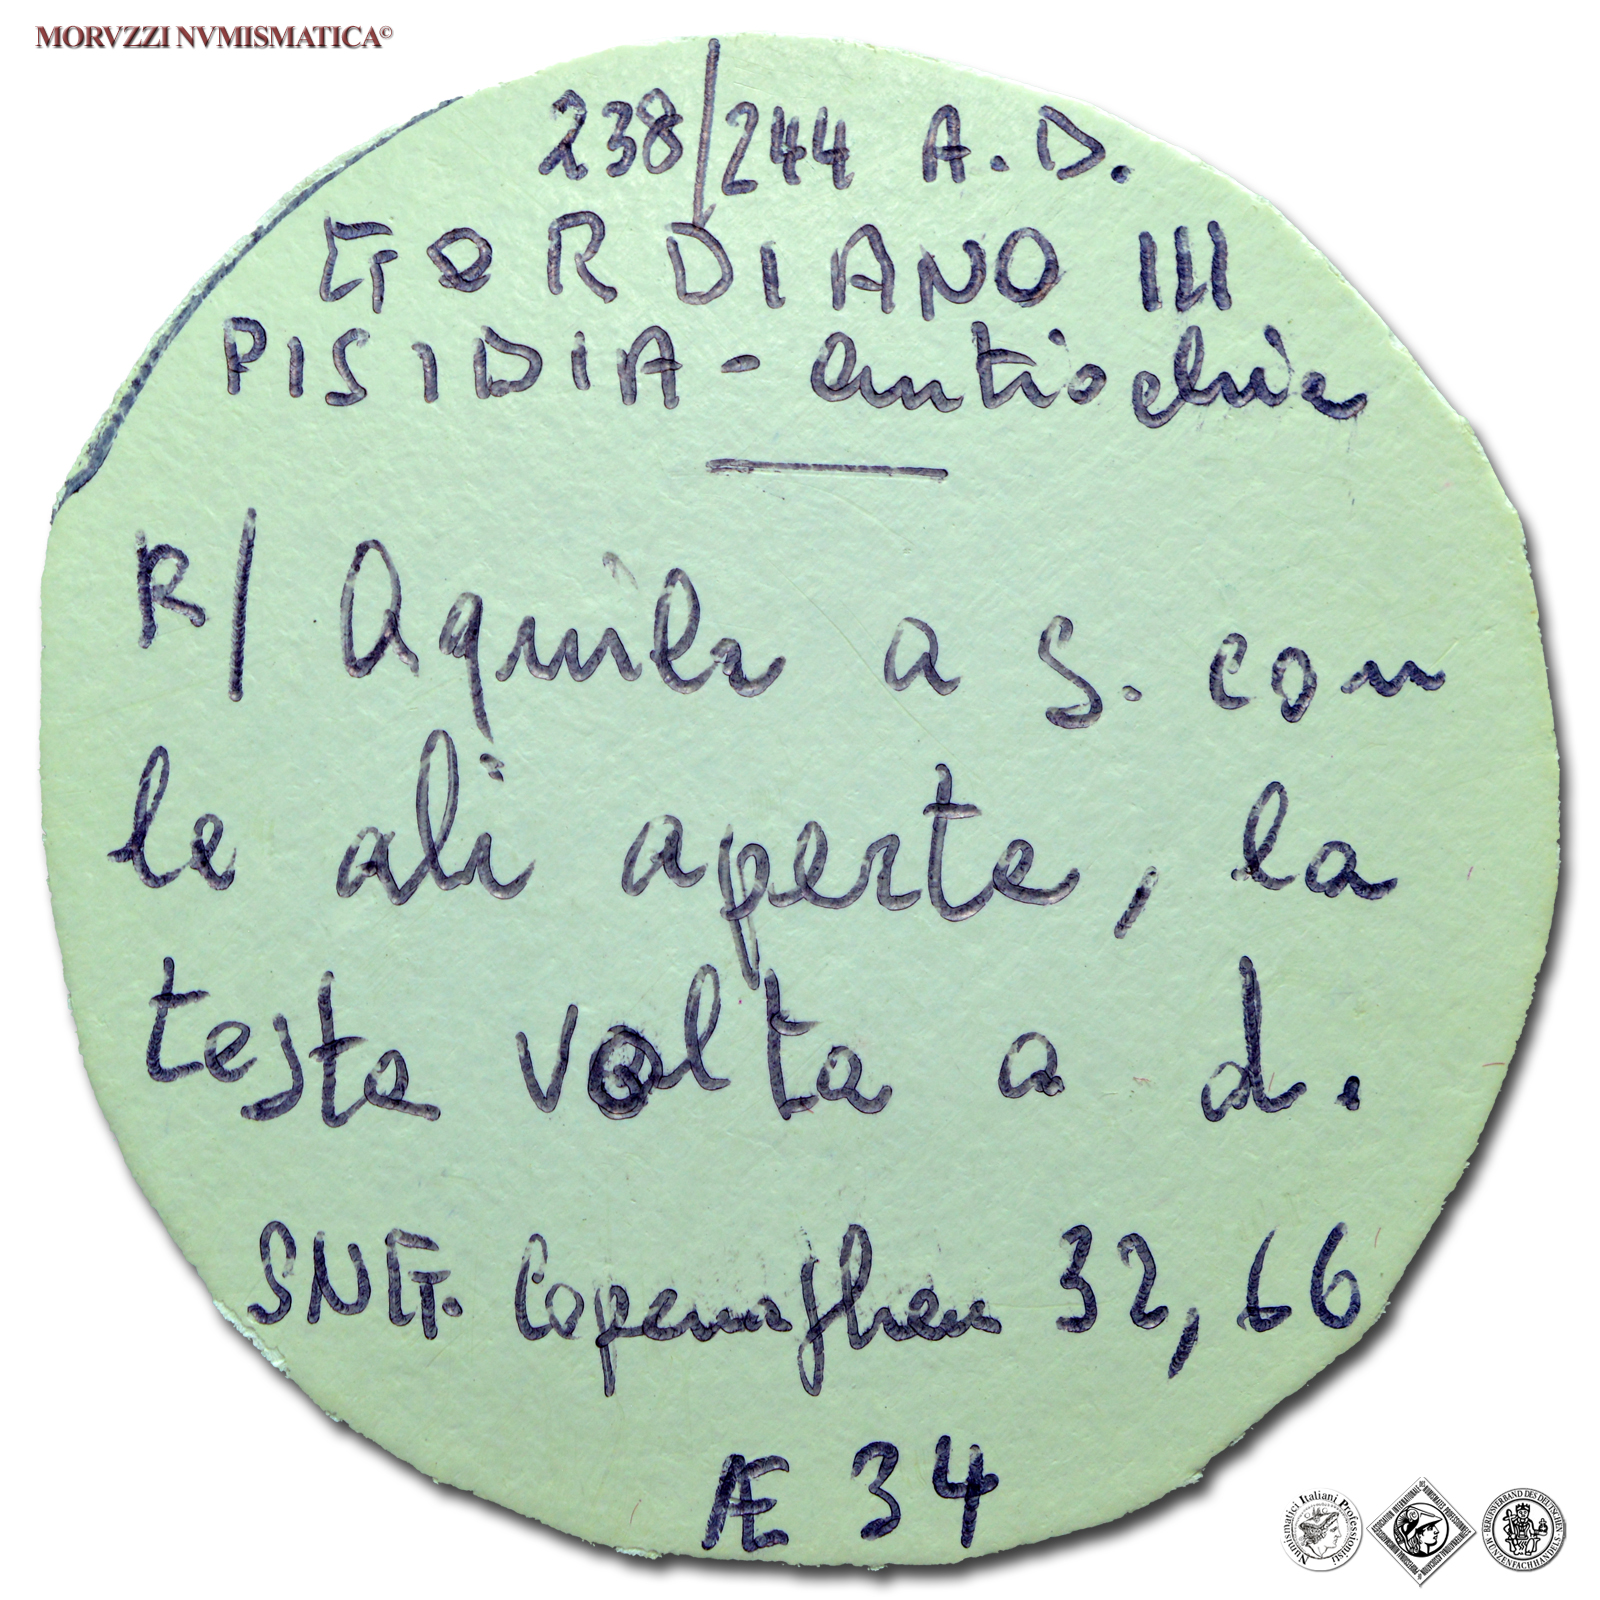 MORVZZI NVMISMATICA©
238/244 A.D.
GORDIANO III
PISIDIA - Antiochia
R/ Aquila a s. con
le ali aperte, la
testa volta a d.
SNG. Copenaghen 32, 66
Æ 34
Numismatici Italiani Professionisti
BERUFSVERBAND DES DEUTSCHEN MÜNZENFACHHANDELS